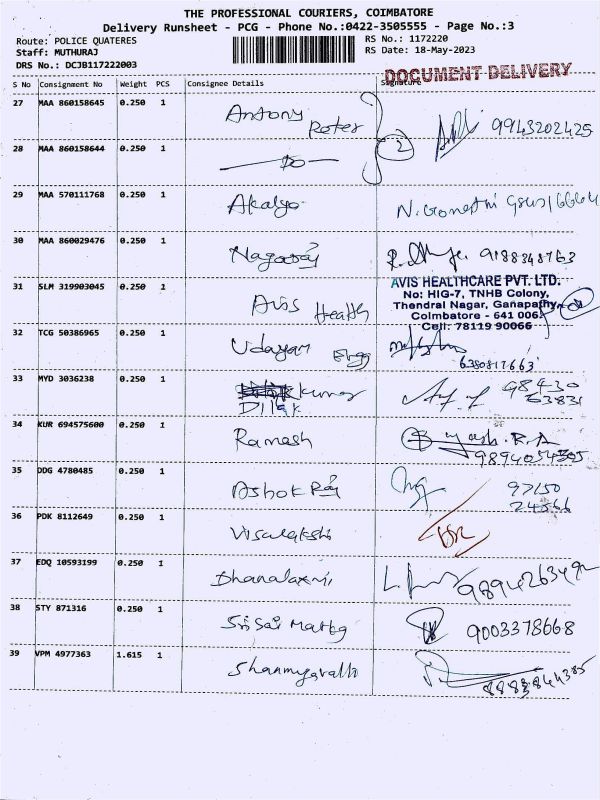 THE PROFESSIONAL COURIERS, COIMBATORE
Delivery Runsheet - PCG - Phone No.:0422-3505555 - Page No.:3
Route: POLICE QUATERES
RS No.: 1172220
Staff: MUTHURAJ
RS Date: 18-May-2023
DRS No.: DCJB117222003
DOCUMENT DELIVERY
S No Consignment No Weight PCS Consignee Details Signature
27 MAA 860158645 0.250 1 Antony Peter 2 9943202425
28 MAA 860158644 0.250 1 Do
29 MAA 570111768 0.250 1 Akalya
30 MAA 860029476 0.250 1 Nagaraj 9188348763
31 SLM 319903045 0.250 1 Aviss Health
AVIS HEALTHCARE PVT. LTD.
No: HIG-7, TNHB Colony,
Thendral Nagar, Ganapathy,
Coimbatore - 641 006.
Cell: 78119 90066
32 TCG 50386965 0.250 1 Udayam Engg 6380817663
33 MYD 3036238 0.250 1 Kumar Dilak 98430 63831
34 KUR 694575600 0.250 1 Ramesh
35 DDG 4780485 0.250 1 Ashok Raj 97150 24566
36 PDK 8112649 0.250 1 Visalakshi
37 EDQ 10593199 0.250 1 Dhanalaxmi
38 STY 871316 0.250 1 Sri Sai 9003378668
39 VPM 4977363 1.615 1 8883844385